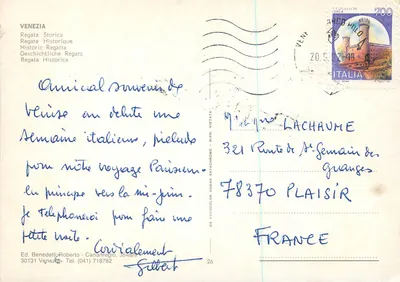 VENEZIA
Regata Storica
Regata Historique
Historic Regatta
Geschichtliche Regata
Regata Histórica
Amical souvenir de
Venise au début une
semaine italienne, prélude
pour notre voyage Parisien
en principe vers la mi-juin.
Je téléphonerai pour faire une
petite visite.
Cordialement
Gilbert
Ed. Benedetti Roberto - Cannaregio
30131 Venezia - Tel. (041) 718782
26
700
ITALIA
20.5
LACHAUME
321 Route de St Germain des
Granges
78370 PLAISIR
FRANCE